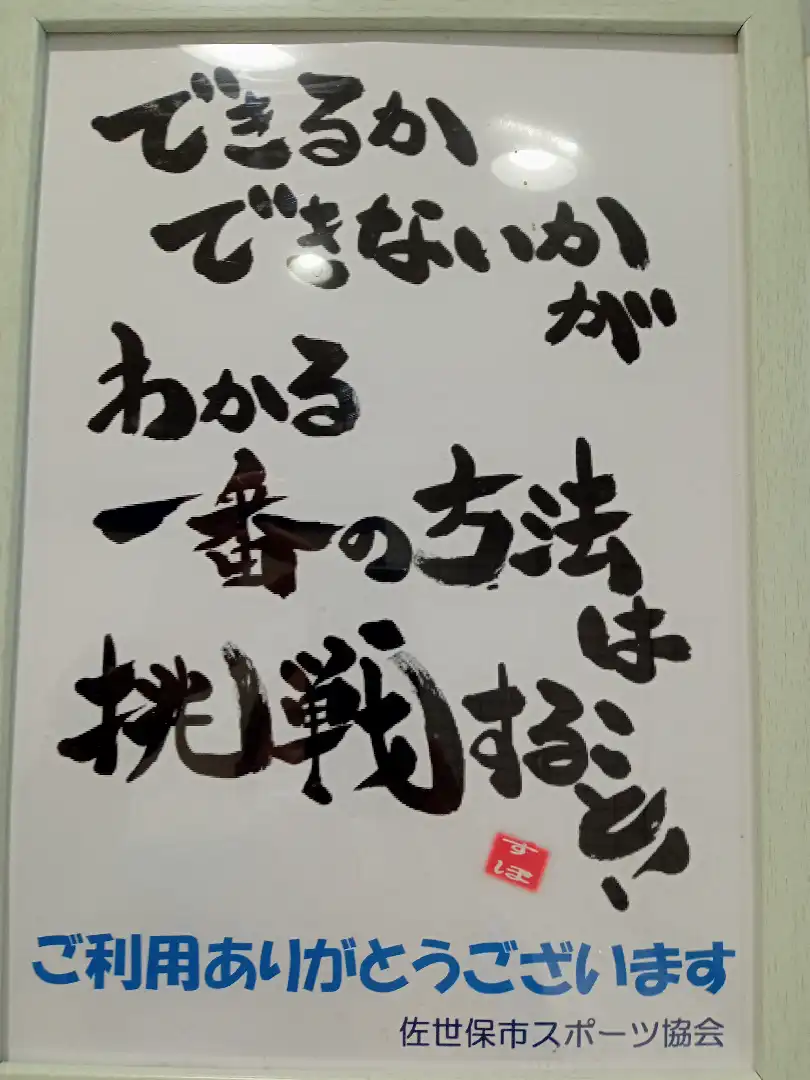 できるか
できないか
が
わかる
一番の方法
は
挑戦すること!
すぽ
ご利用ありがとうございます
佐世保市スポーツ協会